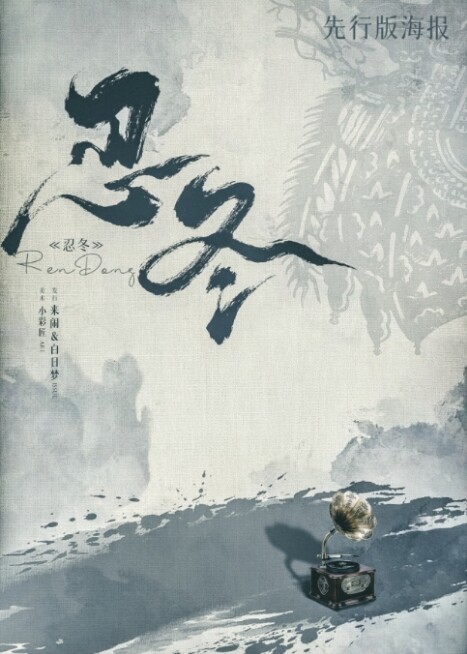 先行版海报
忍冬
《忍冬》
RenDong
发行 来闹&白日梦
小彩匠